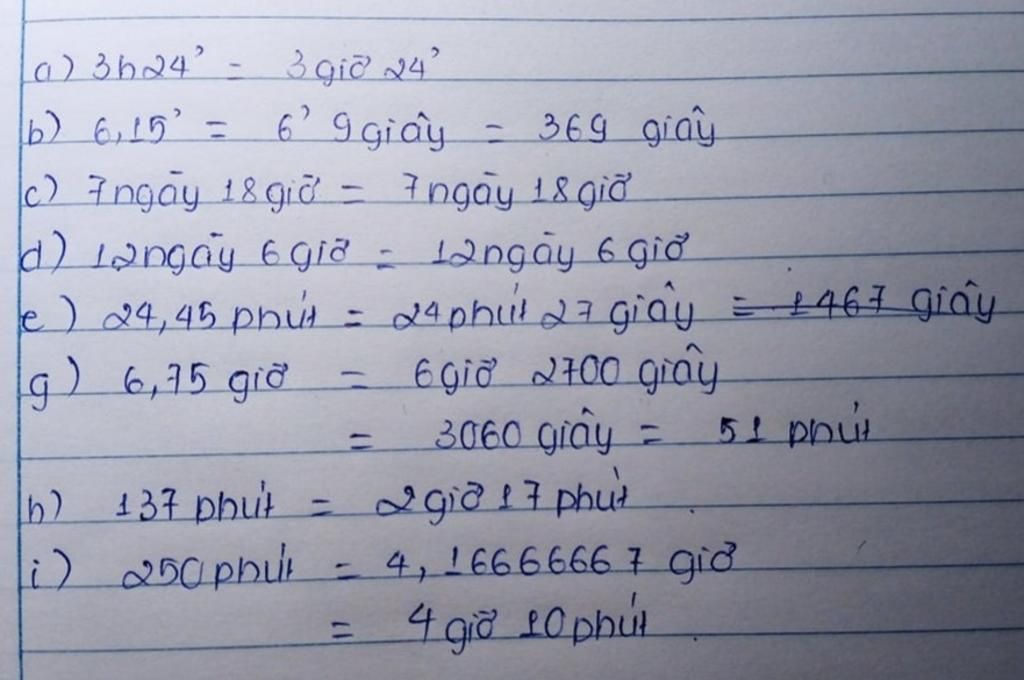 a) 3h24' = 3 giờ 24'
b) 6,15' = 6' 9 giây = 369 giây
c) 7 ngày 18 giờ = 7 ngày 18 giờ
d) 12 ngày 6 giờ = 12 ngày 6 giờ
e) 24,45 phút = 24 phút 27 giây = 1467 giây
g) 6,75 giờ = 6 giờ 2700 giây
= 3060 giây = 51 phút
h) 137 phút = 2 giờ 17 phút
i) 250 phút = 4,16666667 giờ
= 4 giờ 10 phút